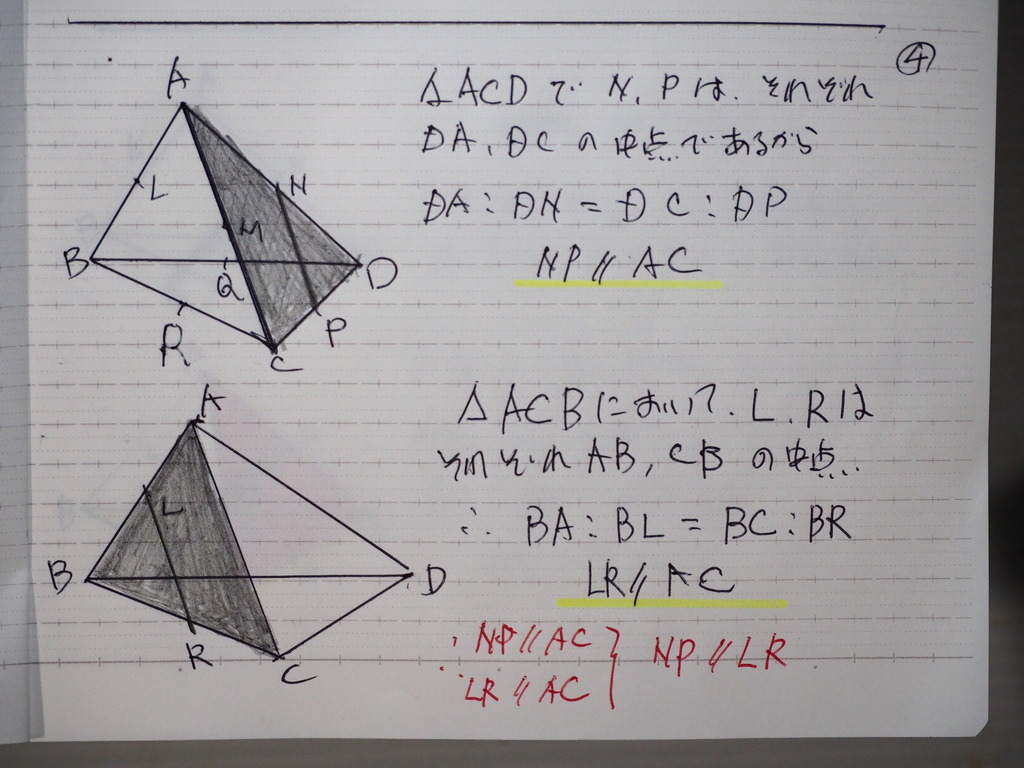 ④
A
L
N
M
B
D
Q
P
R
C
△ACDで N, Pは. それぞれ
DA, DCの中点であるから
DA : DN = DC : DP
NP // AC
A
L
B
D
R
C
△ACBにおいて. L. Rは
それぞれAB, CBの中点..
∴ BA : BL = BC : BR
LR // AC
∴ NP // AC
LR // AC
} NP // LR